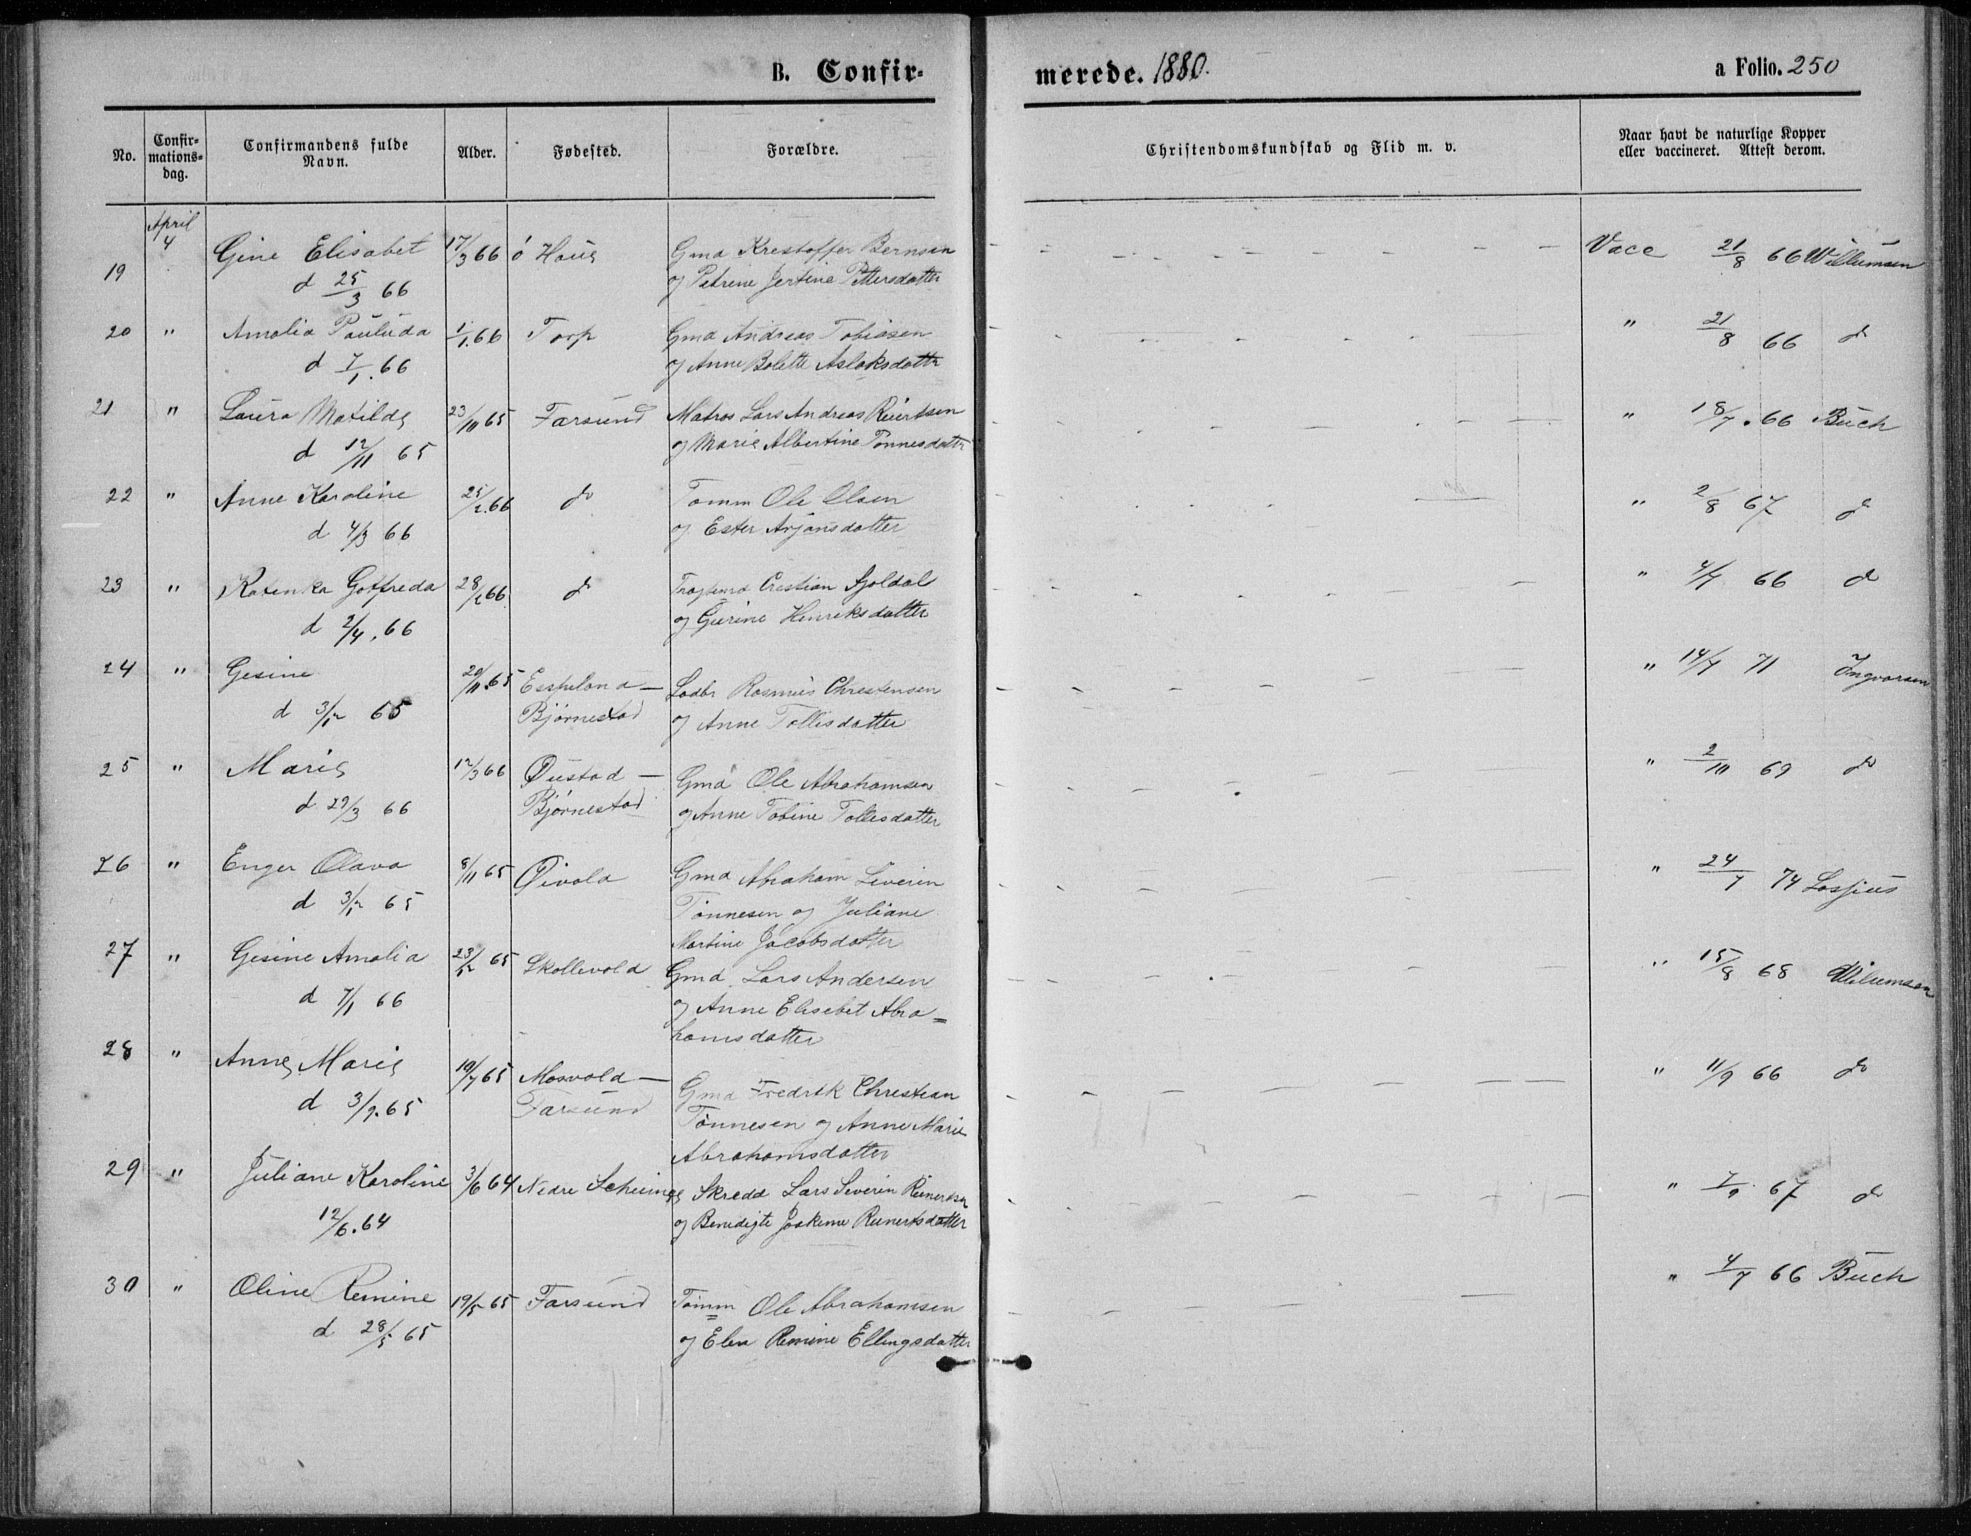 B. Confir-
merede. 1880.
a Folio. 250
No.
Confir-
mations-
dag.
Confirmandens fulde
Navn.
Alder.
Fødested.
Forældre.
Christendomskundskab og Flid m. v.
Naar havt de naturlige Kopper
eller vaccineret. Attest derom.
April
4
19 Gine Elisabet 17/3 66 Gmd Krestoffer Bernsen Vacc 21/8 66 Willumsen
d 25/3 66 og Petrine Jertine Pettersdatter
20 " Amalia Pauluda 1/1.66 Torp Gmd Andreas Tobiasen " 21/8 66 do
d 7/1.66 og Anne Bolette Aslaksdatter
21 " Laura Matilde 23/10 65 Farsund Matros Lars Andreas Reiertsen " 18/7.66 Buch
d 12/11 65 og Marie Albertine Tønnesdatter
22 " Anne Karoline 25/2.66 do Tømm Ole Olsen " 2/8 67 do
d 4/3 66 og Ester Arjansdatter
23 " Katinka Gotfreda 28/2 66 do Crestian Sjoldal " 4/7 66 do
d 2/4.66 og Gurine Henriksdatter
24 " Gesine 20/11.65 Espeland — Rasmus Chrestensen " 14/7 71 Ingvarsen
d 3/12 65 Bjørnestad og Anne Tollisdatter
25 " Marie 12/3 66 Øustad — Gmd Ole Abrahamsen " 2/10 69 do
d 29/3 66 Bjørnestad og Anne Tobine Tollisdatter
26 " Enger Olava 8/11 65 Øivold Gmd Abraham Severin " 24/7 74 Lossius
d 3/12 65 Tønnesen og Juliane
Martine Jacobsdatter
27 " Gesine Amalia 23/12 65 Skollevold Gmd. Lars Andersen " 15/8 68 Willumsen
d 7/1 66 og Anne Elisebet Abra=
hamsdatter
28 " Anne Marie 19/7 65 Mosvold — Gmd Fredrik Christian " 11/9 66 do
d 3/9.65 Farsund Tønnesen og Anne Marie
Abrahamsdatter
29 " Juliane Karoline 3/6 64 Nedre Skredd Lars Severin Reinertsen " 7/9 67 do
12/6.64 og Benedigte Joskime Reinertsdatter
30 " Oline Remine 19/5 65 Farsund Tømm Ole Abrahamsen " 4/7 66 Buch
d 28/5 65 og Elen Remine Ellingsdatter